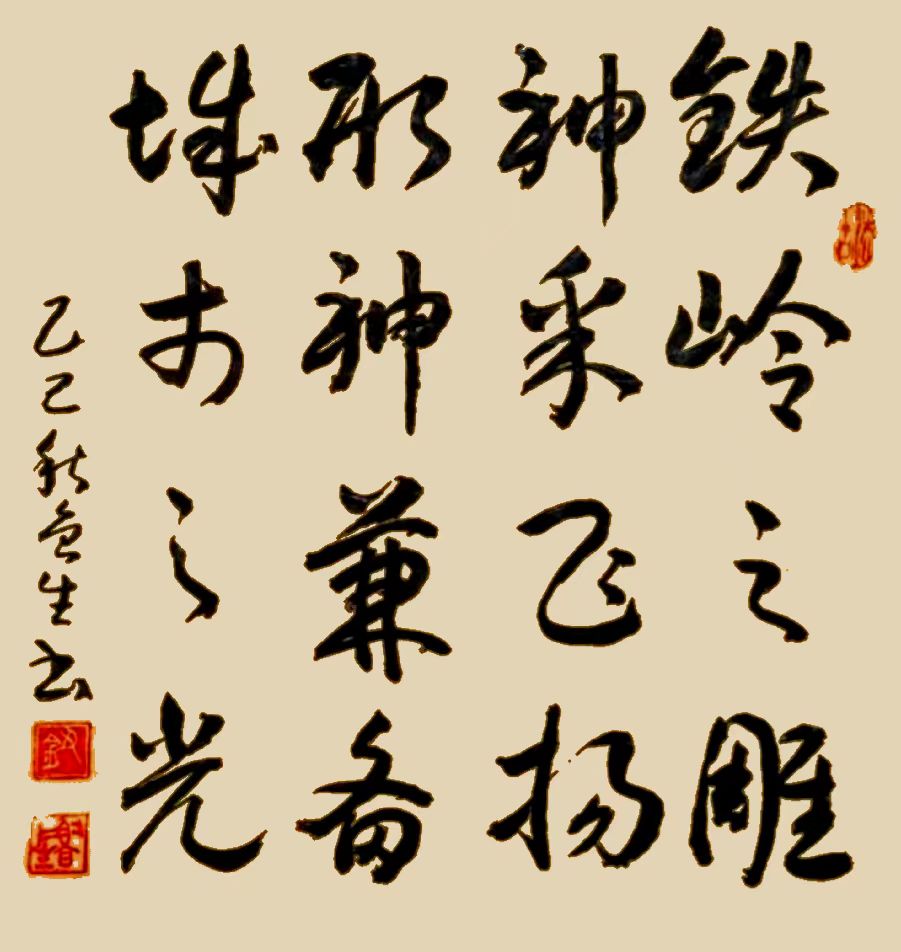 鉄岭之雕
神采飞扬
形神兼备
城市之光
乙巳秋生书